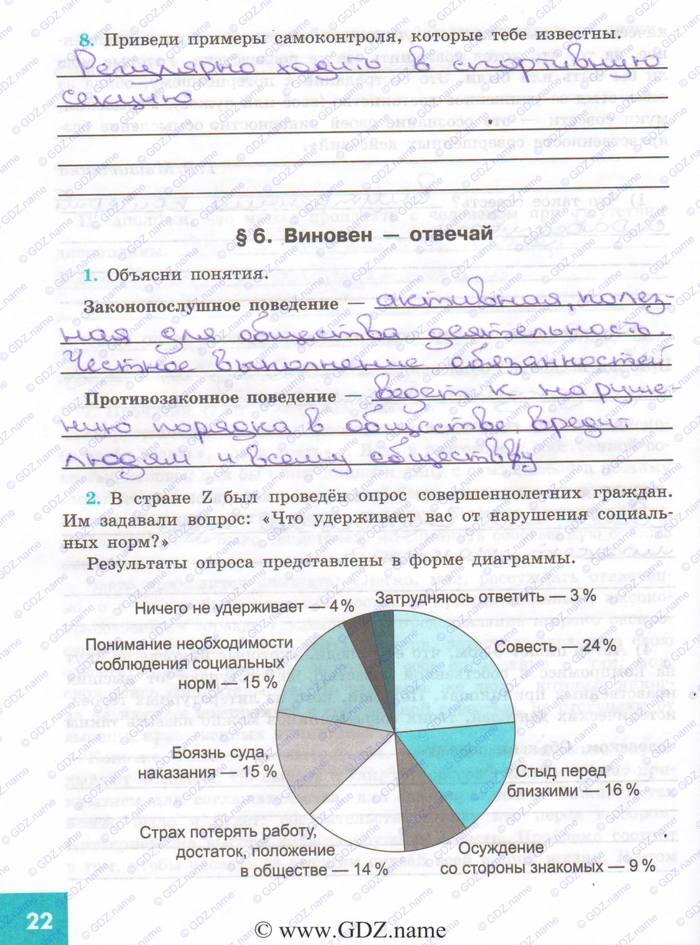 8. Приведи примеры самоконтроля, которые тебе известны.
Регулярно ходить в спортивную
секцию
§ 6. Виновен — отвечай
1. Объясни понятия.
Законопослушное поведение — активная, полез-
ная для общества деятельность.
Честное выполнение обязанностей
Противозаконное поведение — ведет к наруше-
нию порядка в обществе, вредит
людям и всему обществу
2. В стране Z был проведён опрос совершеннолетних граждан.
Им задавали вопрос: «Что удерживает вас от нарушения социаль-
ных норм?»
Результаты опроса представлены в форме диаграммы.
Ничего не удерживает — 4 %
Затрудняюсь ответить — 3 %
Понимание необходимости
соблюдения социальных
норм — 15 %
Совесть — 24 %
Боязнь суда,
наказания — 15 %
Стыд перед
близкими — 16 %
Страх потерять работу,
достаток, положение
в обществе — 14 %
Осуждение
со стороны знакомых — 9 %
22
© www.GDZ.name